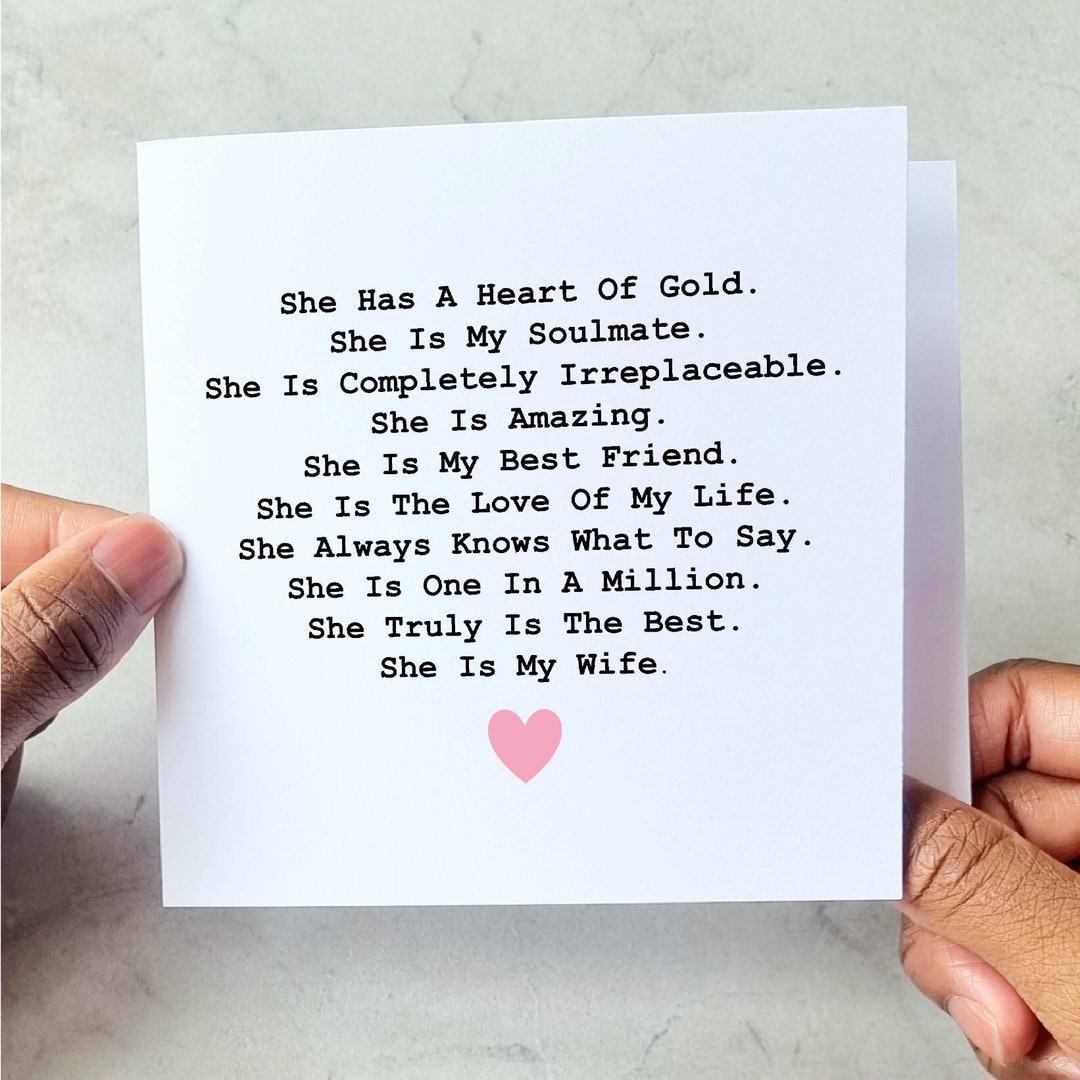 She Has A Heart Of Gold.
She Is My Soulmate.
She Is Completely Irreplaceable.
She Is Amazing.
She Is My Best Friend.
She Is The Love Of My Life.
She Always Knows What To Say.
She Is One In A Million.
She Truly Is The Best.
She Is My Wife.